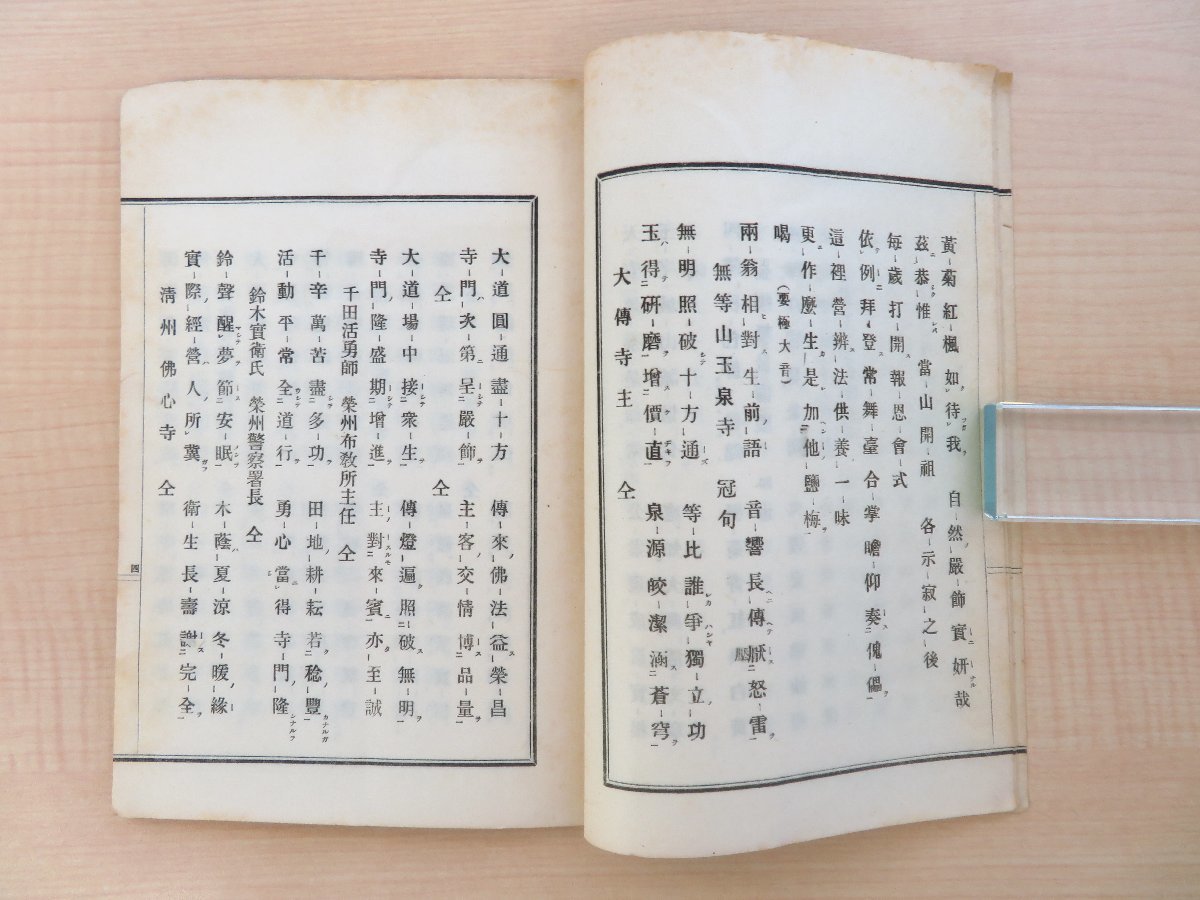 黃菊紅楓如待我　自然嚴飾實妍哉
茲恭惟　當山開祖　各示寂之後
每歲打開報恩會式
依例拜登常舞臺合掌瞻仰奏傀儡
這裡營辨法供養一味
更作麼生是加他鹽梅
喝（要極大音）
兩翁相對生前語　音響長傳獃怒雷
無等山玉泉寺　冠句
無明照破十方通　等比誰爭獨立功
玉得研磨增價直　泉源皎潔涵蒼穹
大傳寺主　仝
大道圓通盡十方　傳來佛法益榮昌
寺門次第呈嚴飾　主客交情博品量
仝　仝
大道場中接衆生　傳燈遍照破無明
寺門隆盛期增進　主對來賓亦至誠
千田活勇師　榮州布敎所主任　仝
千辛萬苦盡多功　田地耕耘若稔豐
活動平常全道行　勇心當得寺門隆
鈴木實衛氏　榮州警察署長　仝
鈴聲醒夢節安眠　木蔭夏涼冬暖緣
實際經營人所冀　衛生長壽謝完全
淸州佛心寺　仝
四